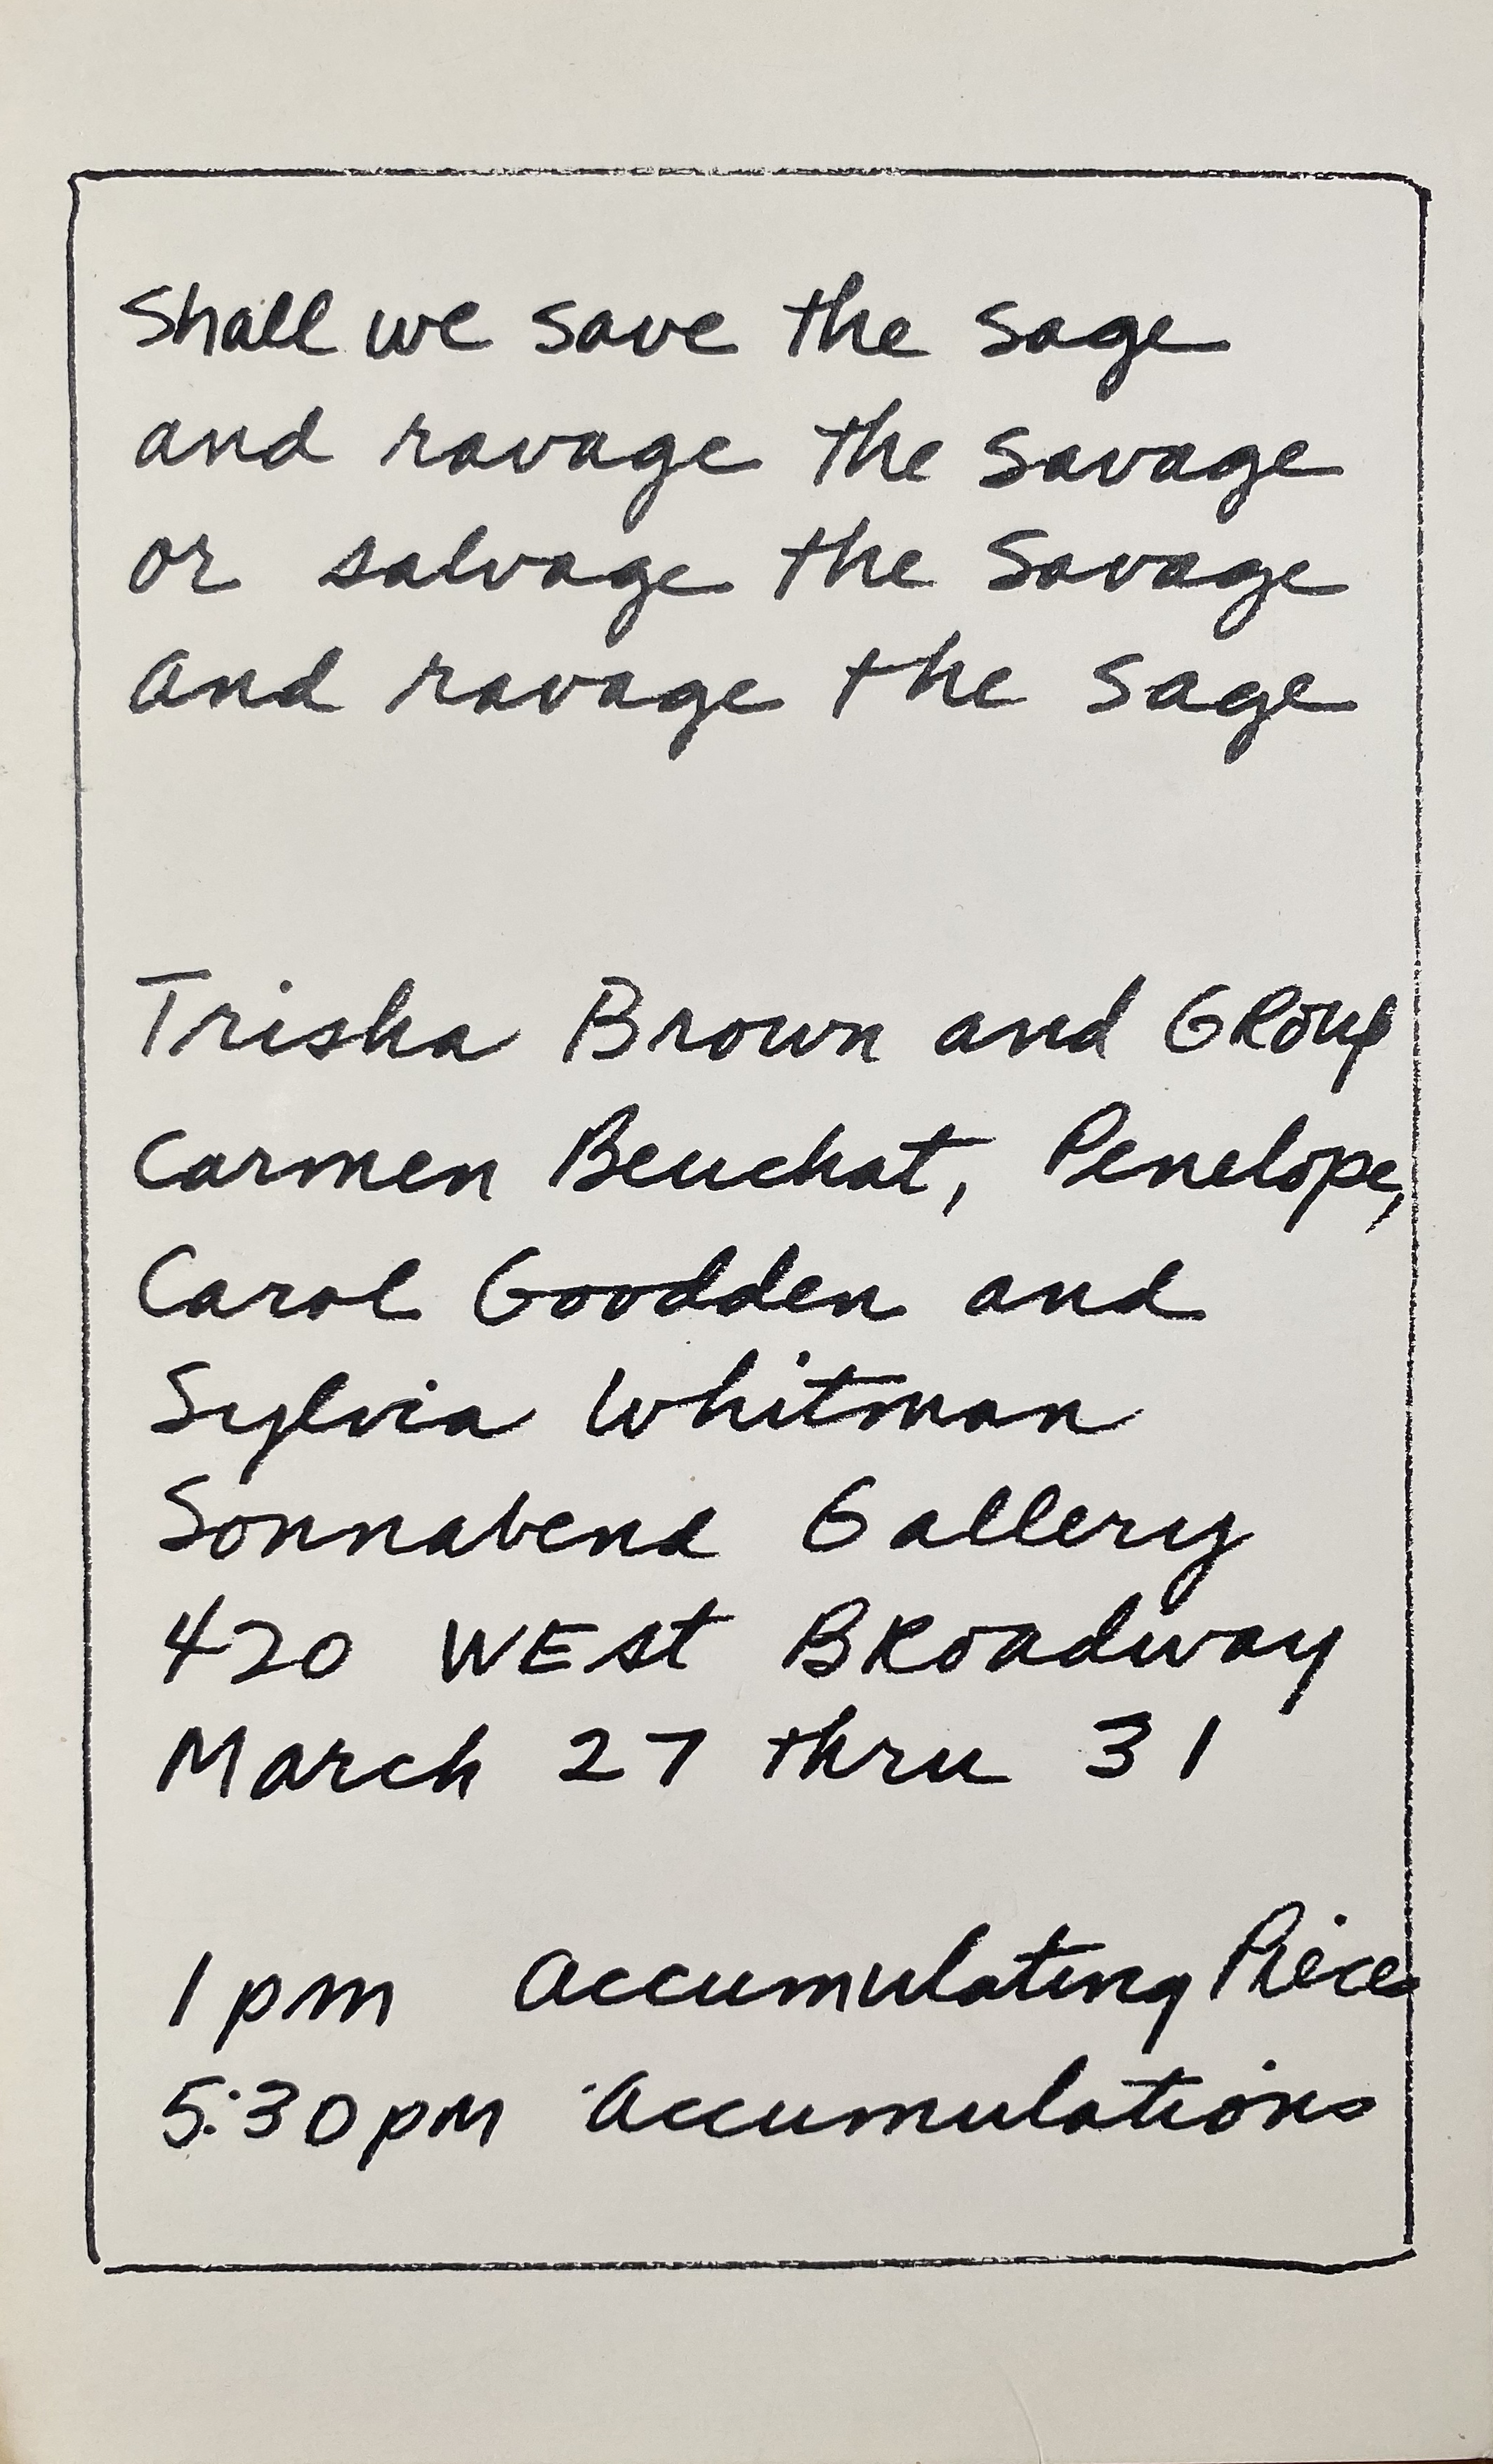 Shall we save the sage
and ravage the savage
or salvage the Savage
and ravage the sage
Trisha Brown and GRoup
Carmen Beuchat, Penelope,
Carol Goodden and
Sylvia Whitman
Sonnabend Gallery
420 WEst BRoadway
March 27 thru 31
1 pm Accumulating Pieces
5:30 pm Accumulations